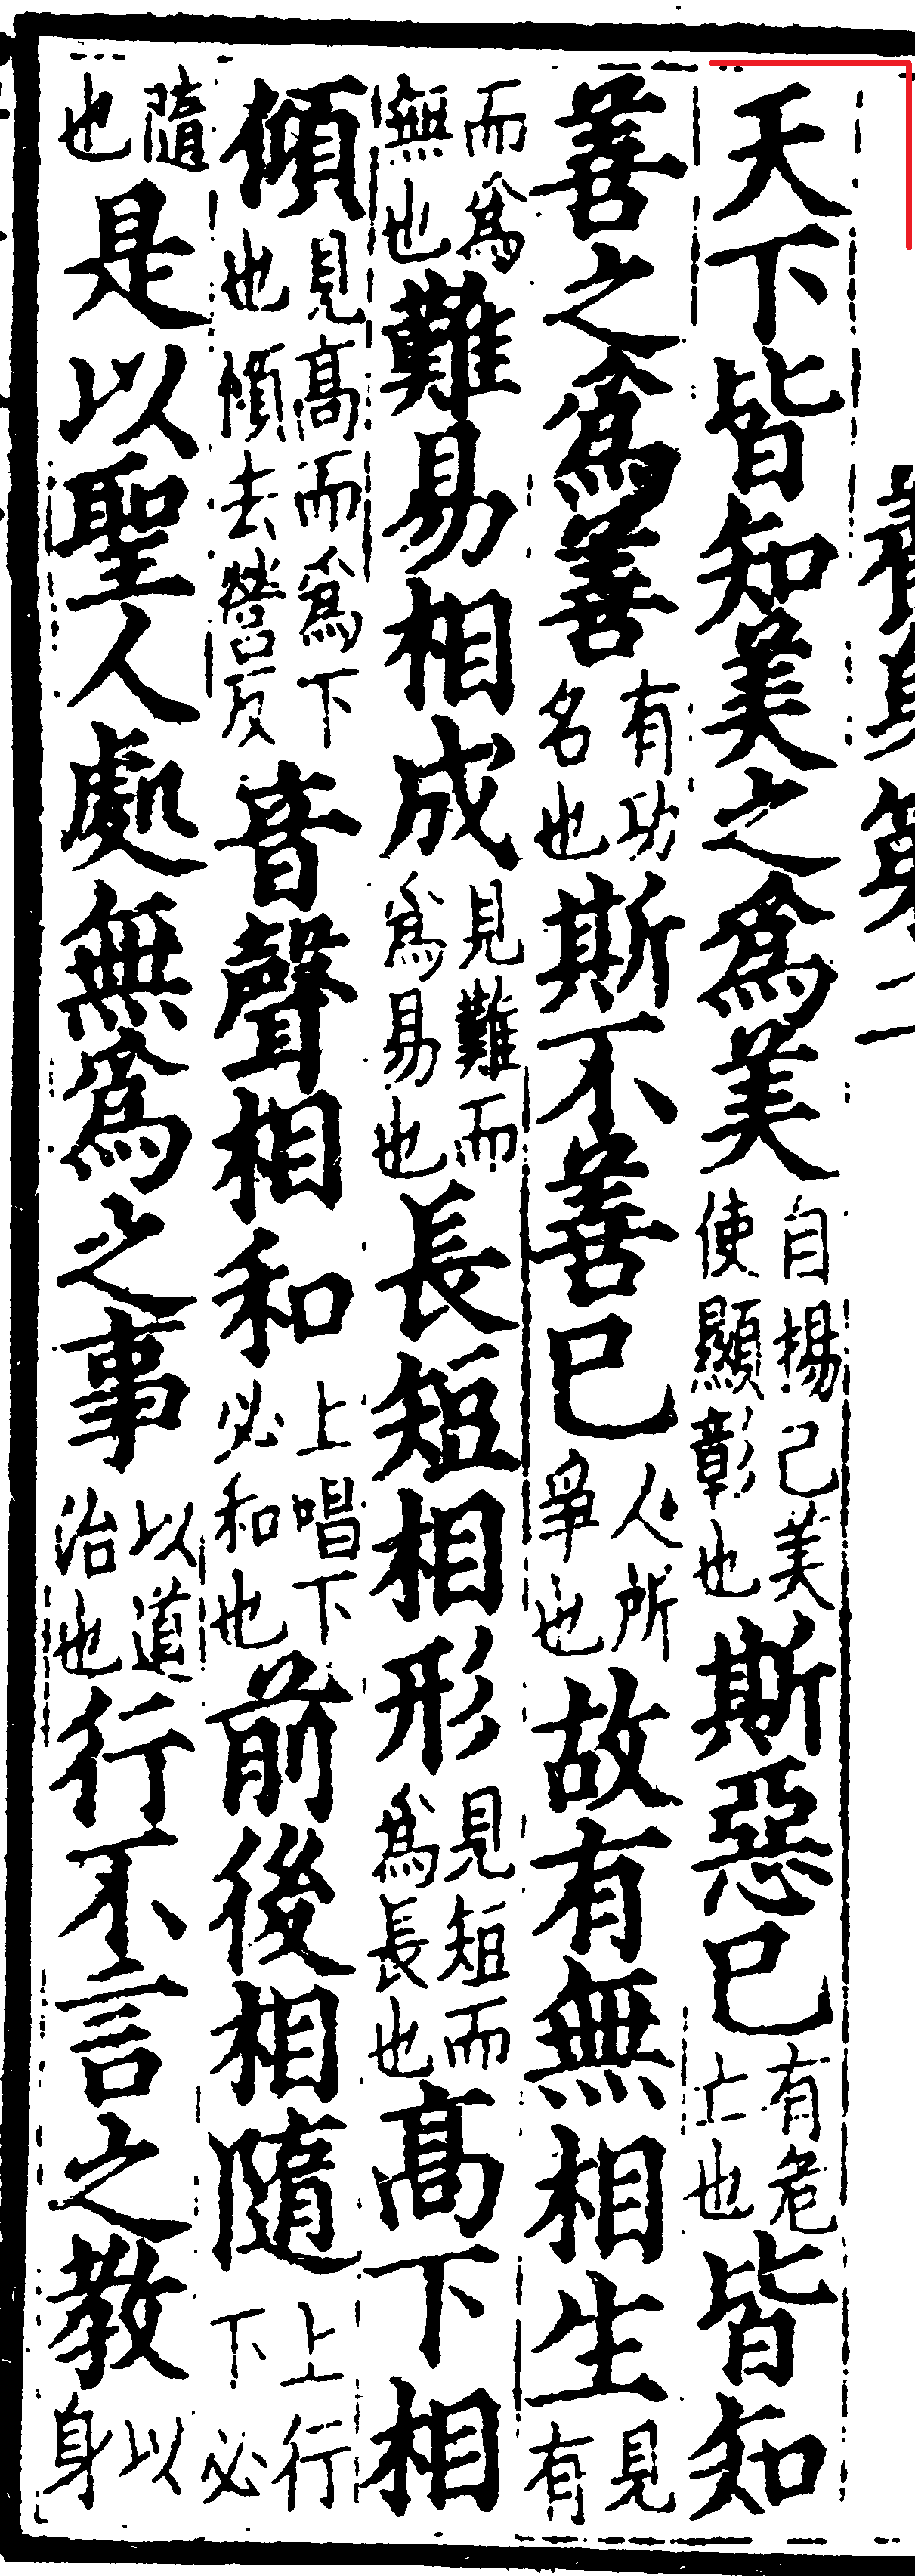 養身第二
天下皆知美之爲美自揚己美使顯彰也斯惡已有危亡也皆知
善之爲善有功名也斯不善已人所爭也故有無相生見有
而爲無也難易相成見難而爲易也長短相形見短而爲長也髙下相
傾見髙而爲下也傾去營反音聲相和上唱下必和也前後相隨上行下必
隨也是以聖人處無爲之事以道治也行不言之教以身